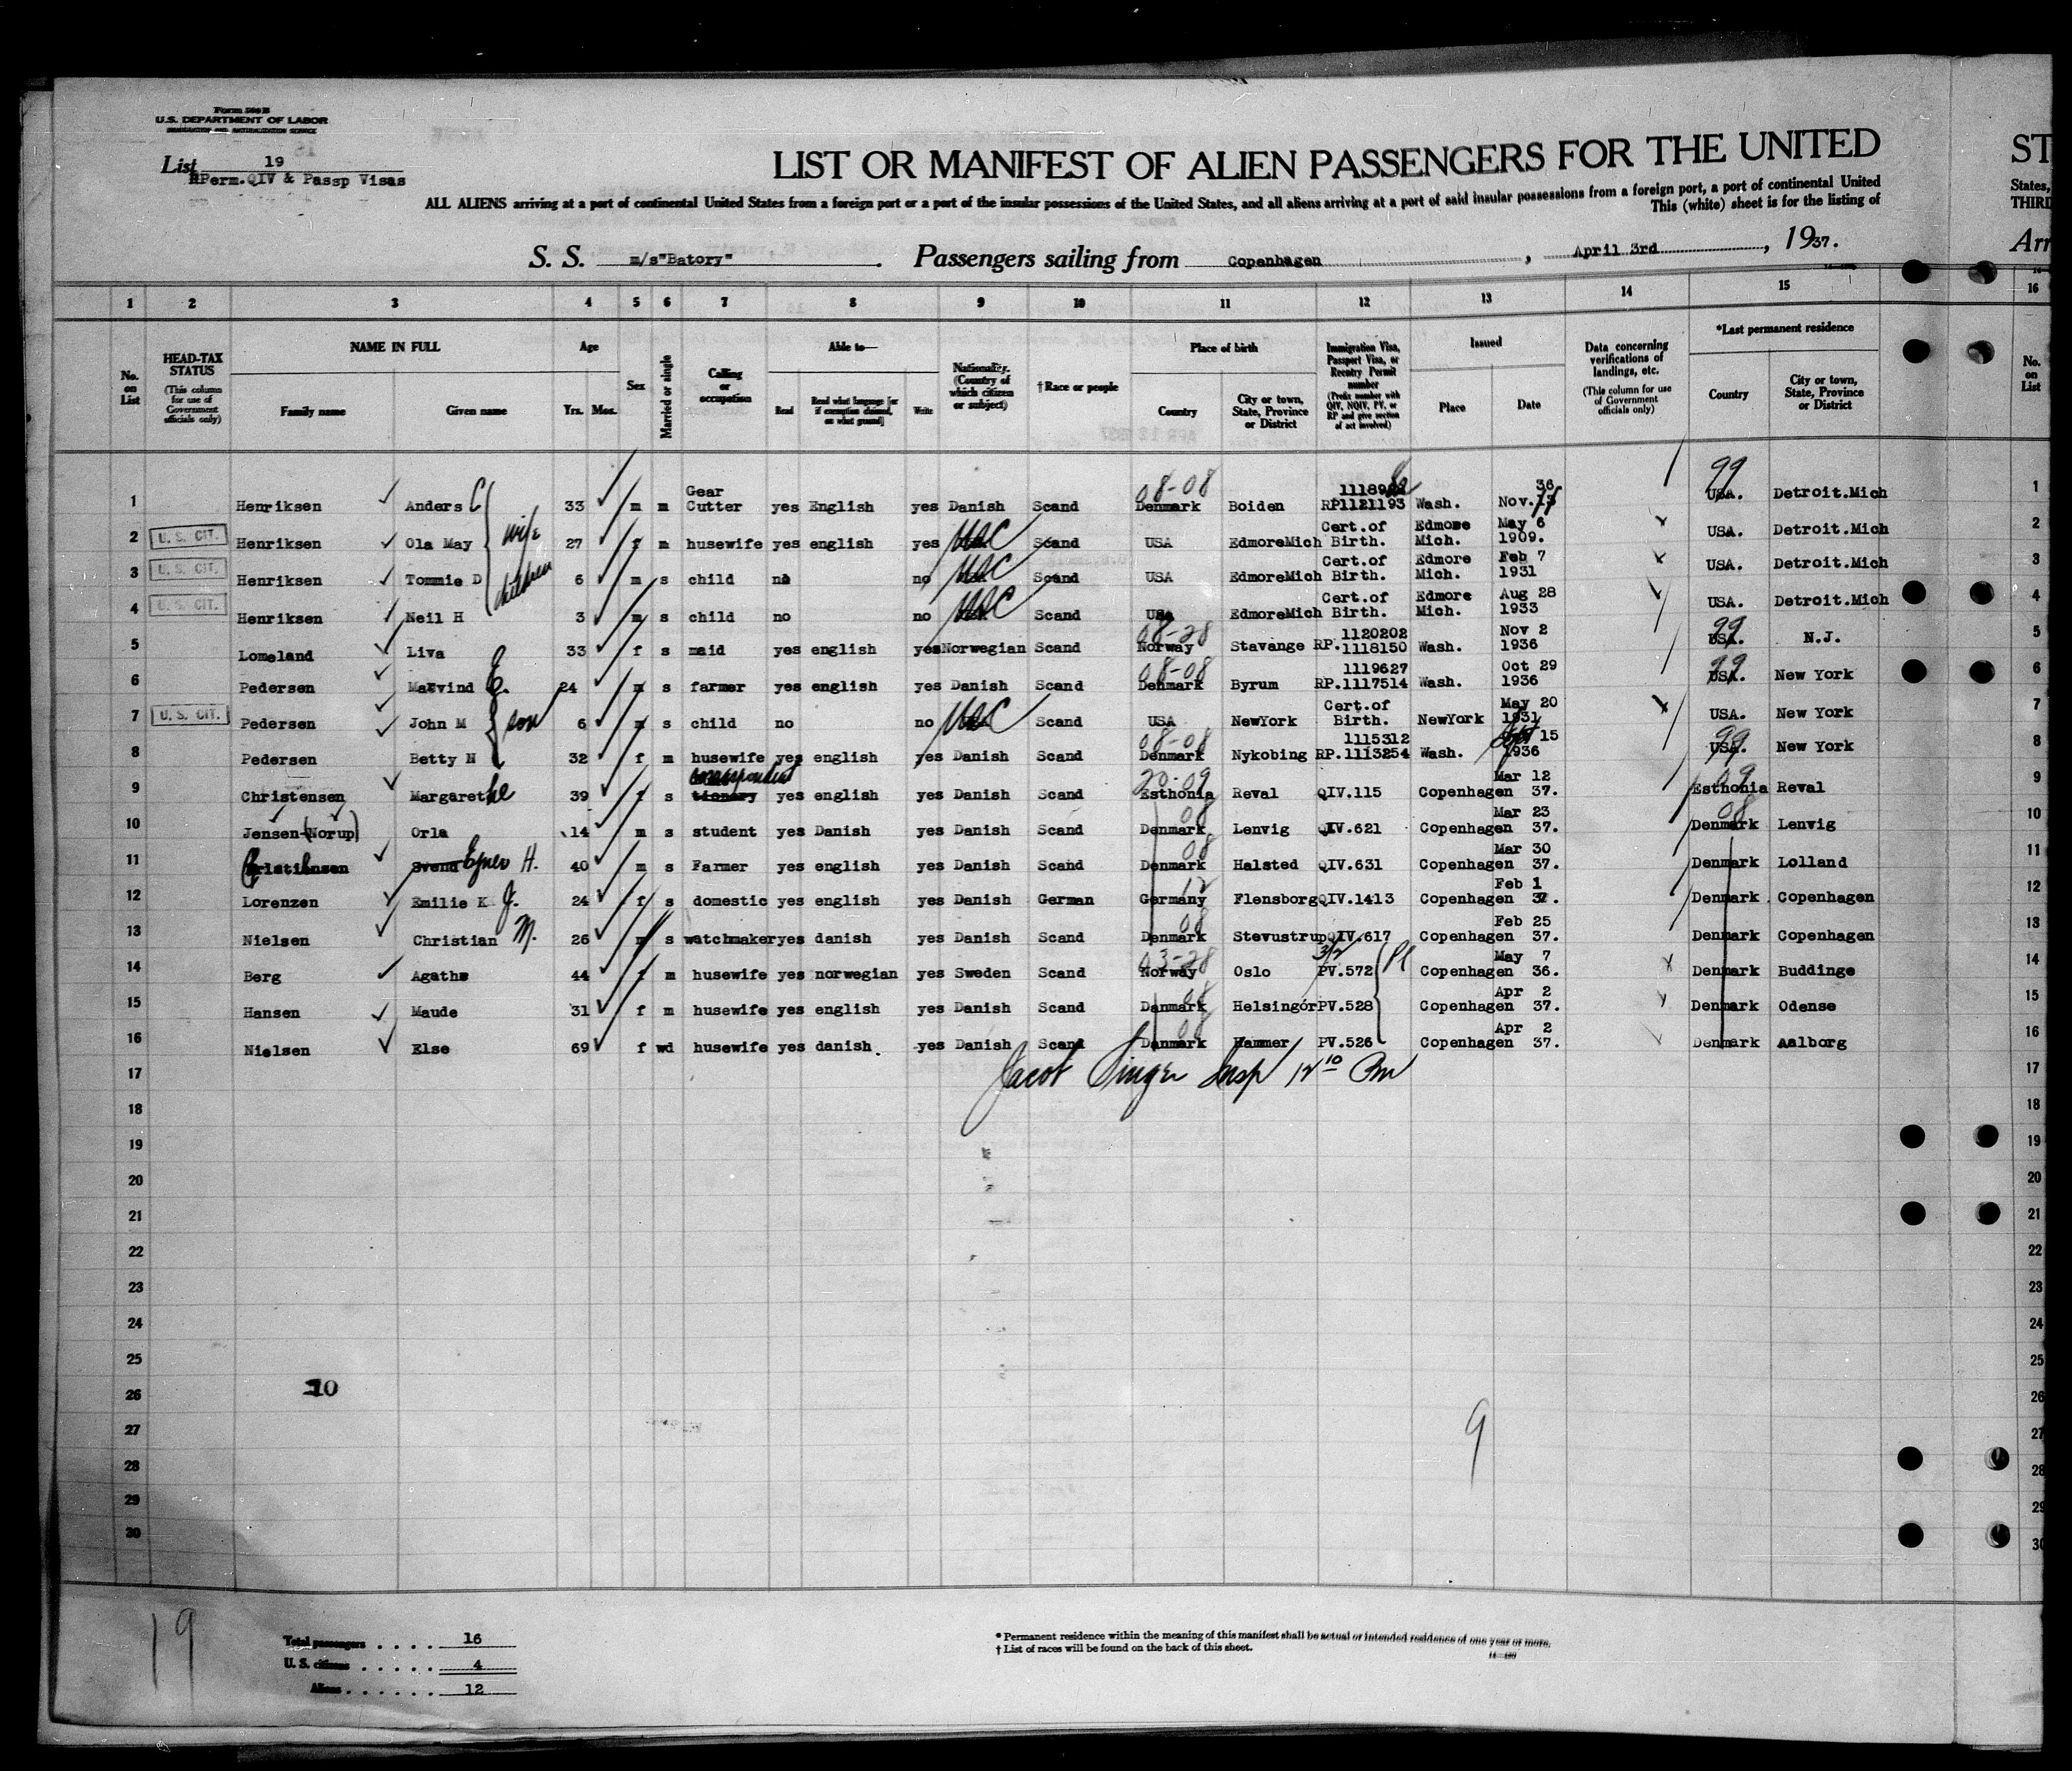 Form 500 B
U.S. DEPARTMENT OF LABOR
IMMIGRATION AND NATURALIZATION SERVICE
List 19
RPerm.QIV & Passp Visas
LIST OR MANIFEST OF ALIEN PASSENGERS FOR THE UNITED
ST
ALL ALIENS arriving at a port of continental United States from a foreign port or a port of the insular possessions of the United States, and all aliens arriving at a port of said insular possessions from a foreign port, a port of continental United
States,
This (white) sheet is for the listing of
THIRD
S. S. m/s"Batory". Passengers sailing from Copenhagen, April 3rd, 1937.
Arr
1 2 3 4 5 6 7 8 9 10 11 12 13 14 15 16
No. on List
HEAD-TAX STATUS (This column for use of Government officials only)
NAME IN FULL Family name Given name
Age Yrs. Mos.
Sex
Married or single
Calling or occupation
Able to— Read Read what language [or if exemption claimed, on what ground] Write
Nationality. (Country of which citizen or subject)
†Race or people
Place of birth Country City or town, State, Province or District
Immigration Visa, Passport Visa, or Reentry Permit number (Prefix number with QIV, NQIV, PV, or RP and give section of act involved)
Issued Place Date
Data concerning verifications of landings, etc. (This column for use of Government officials only)
*Last permanent residence Country City or town, State, Province or District
No. on List
1 Henriksen Anders C 33 m m Gear Cutter yes English yes Danish Scand 08-08 Denmark Boiden RP1121193 Wash. Nov. 36 99 USA. Detroit.Mich 1
2 U. S. CIT. Henriksen Ola May wife 27 f m husewife yes english yes USC Scand USA EdmoreMich Cert.of Birth. Edmore Mich. May 6 1909. USA. Detroit.Mich 2
3 U. S. CIT. Henriksen Tommie D children 6 m s child no no USC Scand USA EdmoreMich Cert.of Birth. Edmore Mich. Feb 7 1931 USA. Detroit.Mich 3
4 U. S. CIT. Henriksen Neil H 3 m s child no no USC Scand USA EdmoreMich Cert.of Birth. Edmore Mich. Aug 28 1933 USA. Detroit.Mich 4
5 Lomeland Liva 33 f s maid yes english yes Norwegian Scand 08-28 Norway Stavange RP. 1120202 1118150 Wash. Nov 2 1936 99 USA. N.J. 5
6 Pedersen E. 24 m s farmer yes english yes Danish Scand 08-08 Denmark Byrum 1119627 RP.1117514 Wash. Oct 29 1936 99 USA. New York 6
7 U. S. CIT. Pedersen John M son 6 m s child no no USC Scand USA NewYork Cert.of Birth. NewYork May 20 1931 USA. New York 7
8 Pedersen Betty N 32 f m husewife yes english yes Danish Scand 08-08 Denmark Nykobing 1115312 RP.1113254 Wash. Sept 15 1936 99 USA. New York 8
9 Christensen Margarethe 39 f s correspondent tionary yes english yes Danish Scand 20-09 Esthonia Reval QIV.115 Copenhagen Mar 12 37. 09 Esthonia Reval 9
10 Jensen-(Norup) Orla 14 m s student yes Danish yes Danish Scand 08 Denmark Lenvig QIV.621 Copenhagen Mar 23 37. 08 Denmark Lenvig 10
11 Christiansen Svend Ejner H. 40 m s Farmer yes english yes Danish Scand 08 Denmark Halsted QIV.631 Copenhagen Mar 30 37. Denmark Lolland 11
12 Lorenzen Emilie K J. 24 f s domestic yes english yes Danish German 12 Germany Flensborg QIV.1413 Copenhagen Feb 1 37. Denmark Copenhagen 12
13 Nielsen Christian M. 26 m s watchmaker yes danish yes Danish Scand 08 Denmark Stevustrup QIV.617 Copenhagen Feb 25 37. Denmark Copenhagen 13
14 Berg Agathe 44 f m husewife yes norwegian yes Sweden Scand 03-28 Norway Oslo 3/2 PV.572 Copenhagen May 7 36. Denmark Buddinge 14
15 Hansen Maude 31 f m husewife yes english yes Danish Scand 08 Danmark Helsingör PV.528 Copenhagen Apr 2 37. Denmark Odense 15
16 Nielsen Else 69 f wd husewife yes danish. yes Danish Scand 08 Danmark Hammer PV.526 Copenhagen Apr 2 37. Denmark Aalborg 16
17 Jacob Singer Insp 12 10 Pm 17
18 18
19 19
20 20
21 21
22 22
23 23
24 24
25 25
26 10 26
27 9 27
28 28
29 29
30 30
19
Total passengers .... 16
U. S. citizens ..... 4
Aliens ...... 12
* Permanent residence within the meaning of this manifest shall be actual or intended residence of one year or more.
† List of races will be found on the back of this sheet.